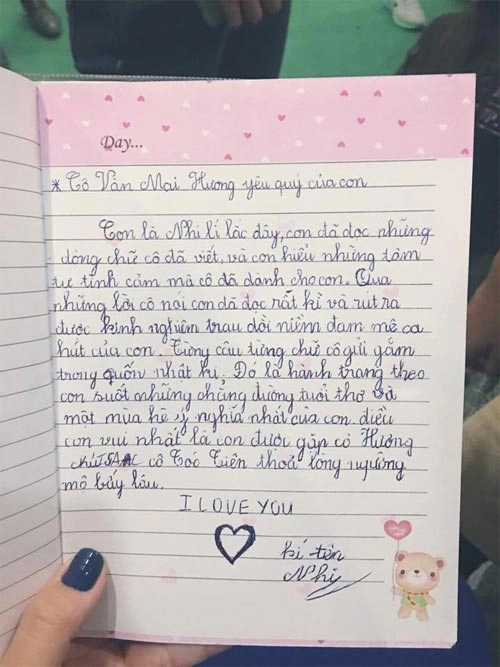 Day...
* Cô Văn Mai Hương yêu quý của con
Con là Nhi lí lắc đây, con đã đọc những
dòng chữ cô đã viết, và con hiểu những tâm
tư tình cảm mà cô đã dành cho con. Qua
những lời cô nói con đã đọc rất kĩ và rút ra
được kinh nghiệm trau dồi niềm đam mê ca
hát của con. Từng câu từng chữ cô gửi gắm
trong quốn nhật kí. Đó là hành trang theo
con suốt những chặng đường tuổi thơ và
một mùa hè ý nghĩa nhất của con. điều
con vui nhất là con được gặp cô Hương
cô Tóc Tiên thoả lòng ngưỡng
mộ bấy lâu.
I LOVE YOU
kí tên
Nhi